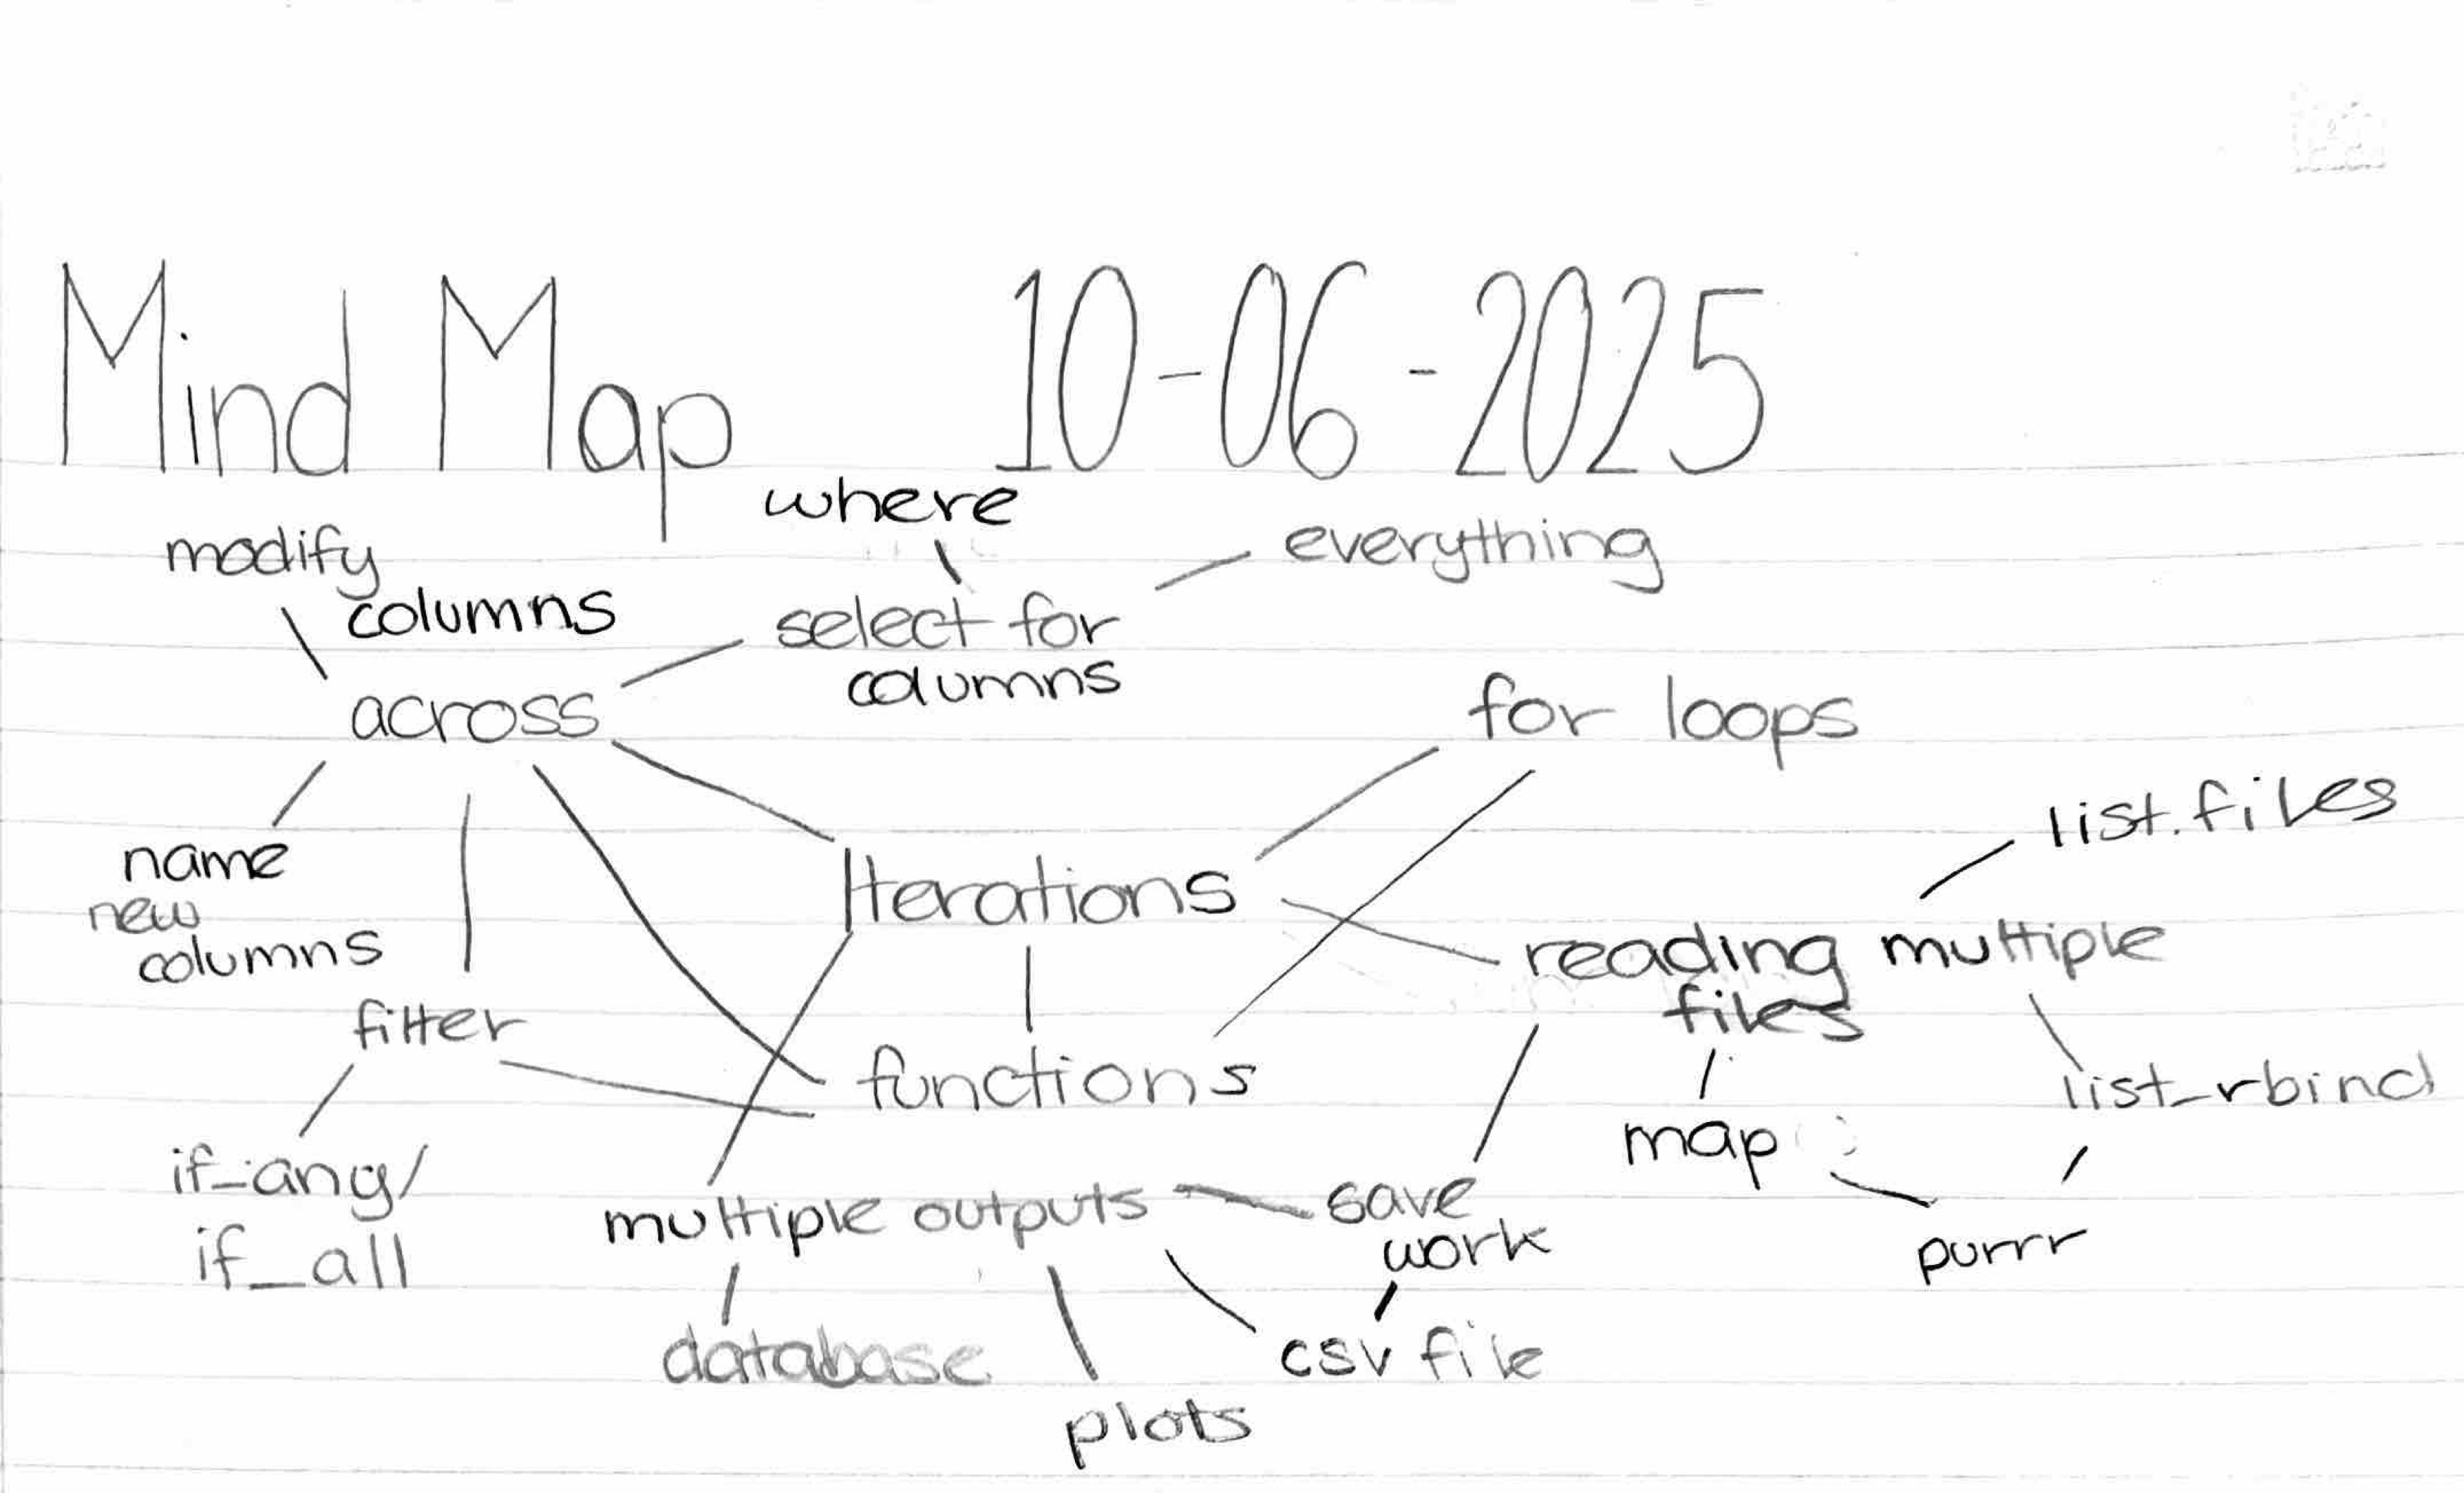 Mind Map 10-06-2025
where
modify
columns
everything
select for
columns
across
for loops
list.files
name
new
columns
Iterations
reading multiple
files
filter
functions
list_rbind
map
if_any/
if_all
multiple outputs
save
work
purrr
database
csv file
plots